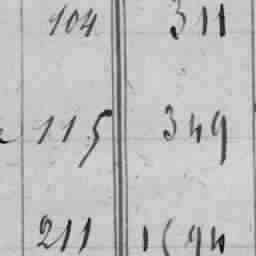 104 311
115 349
211